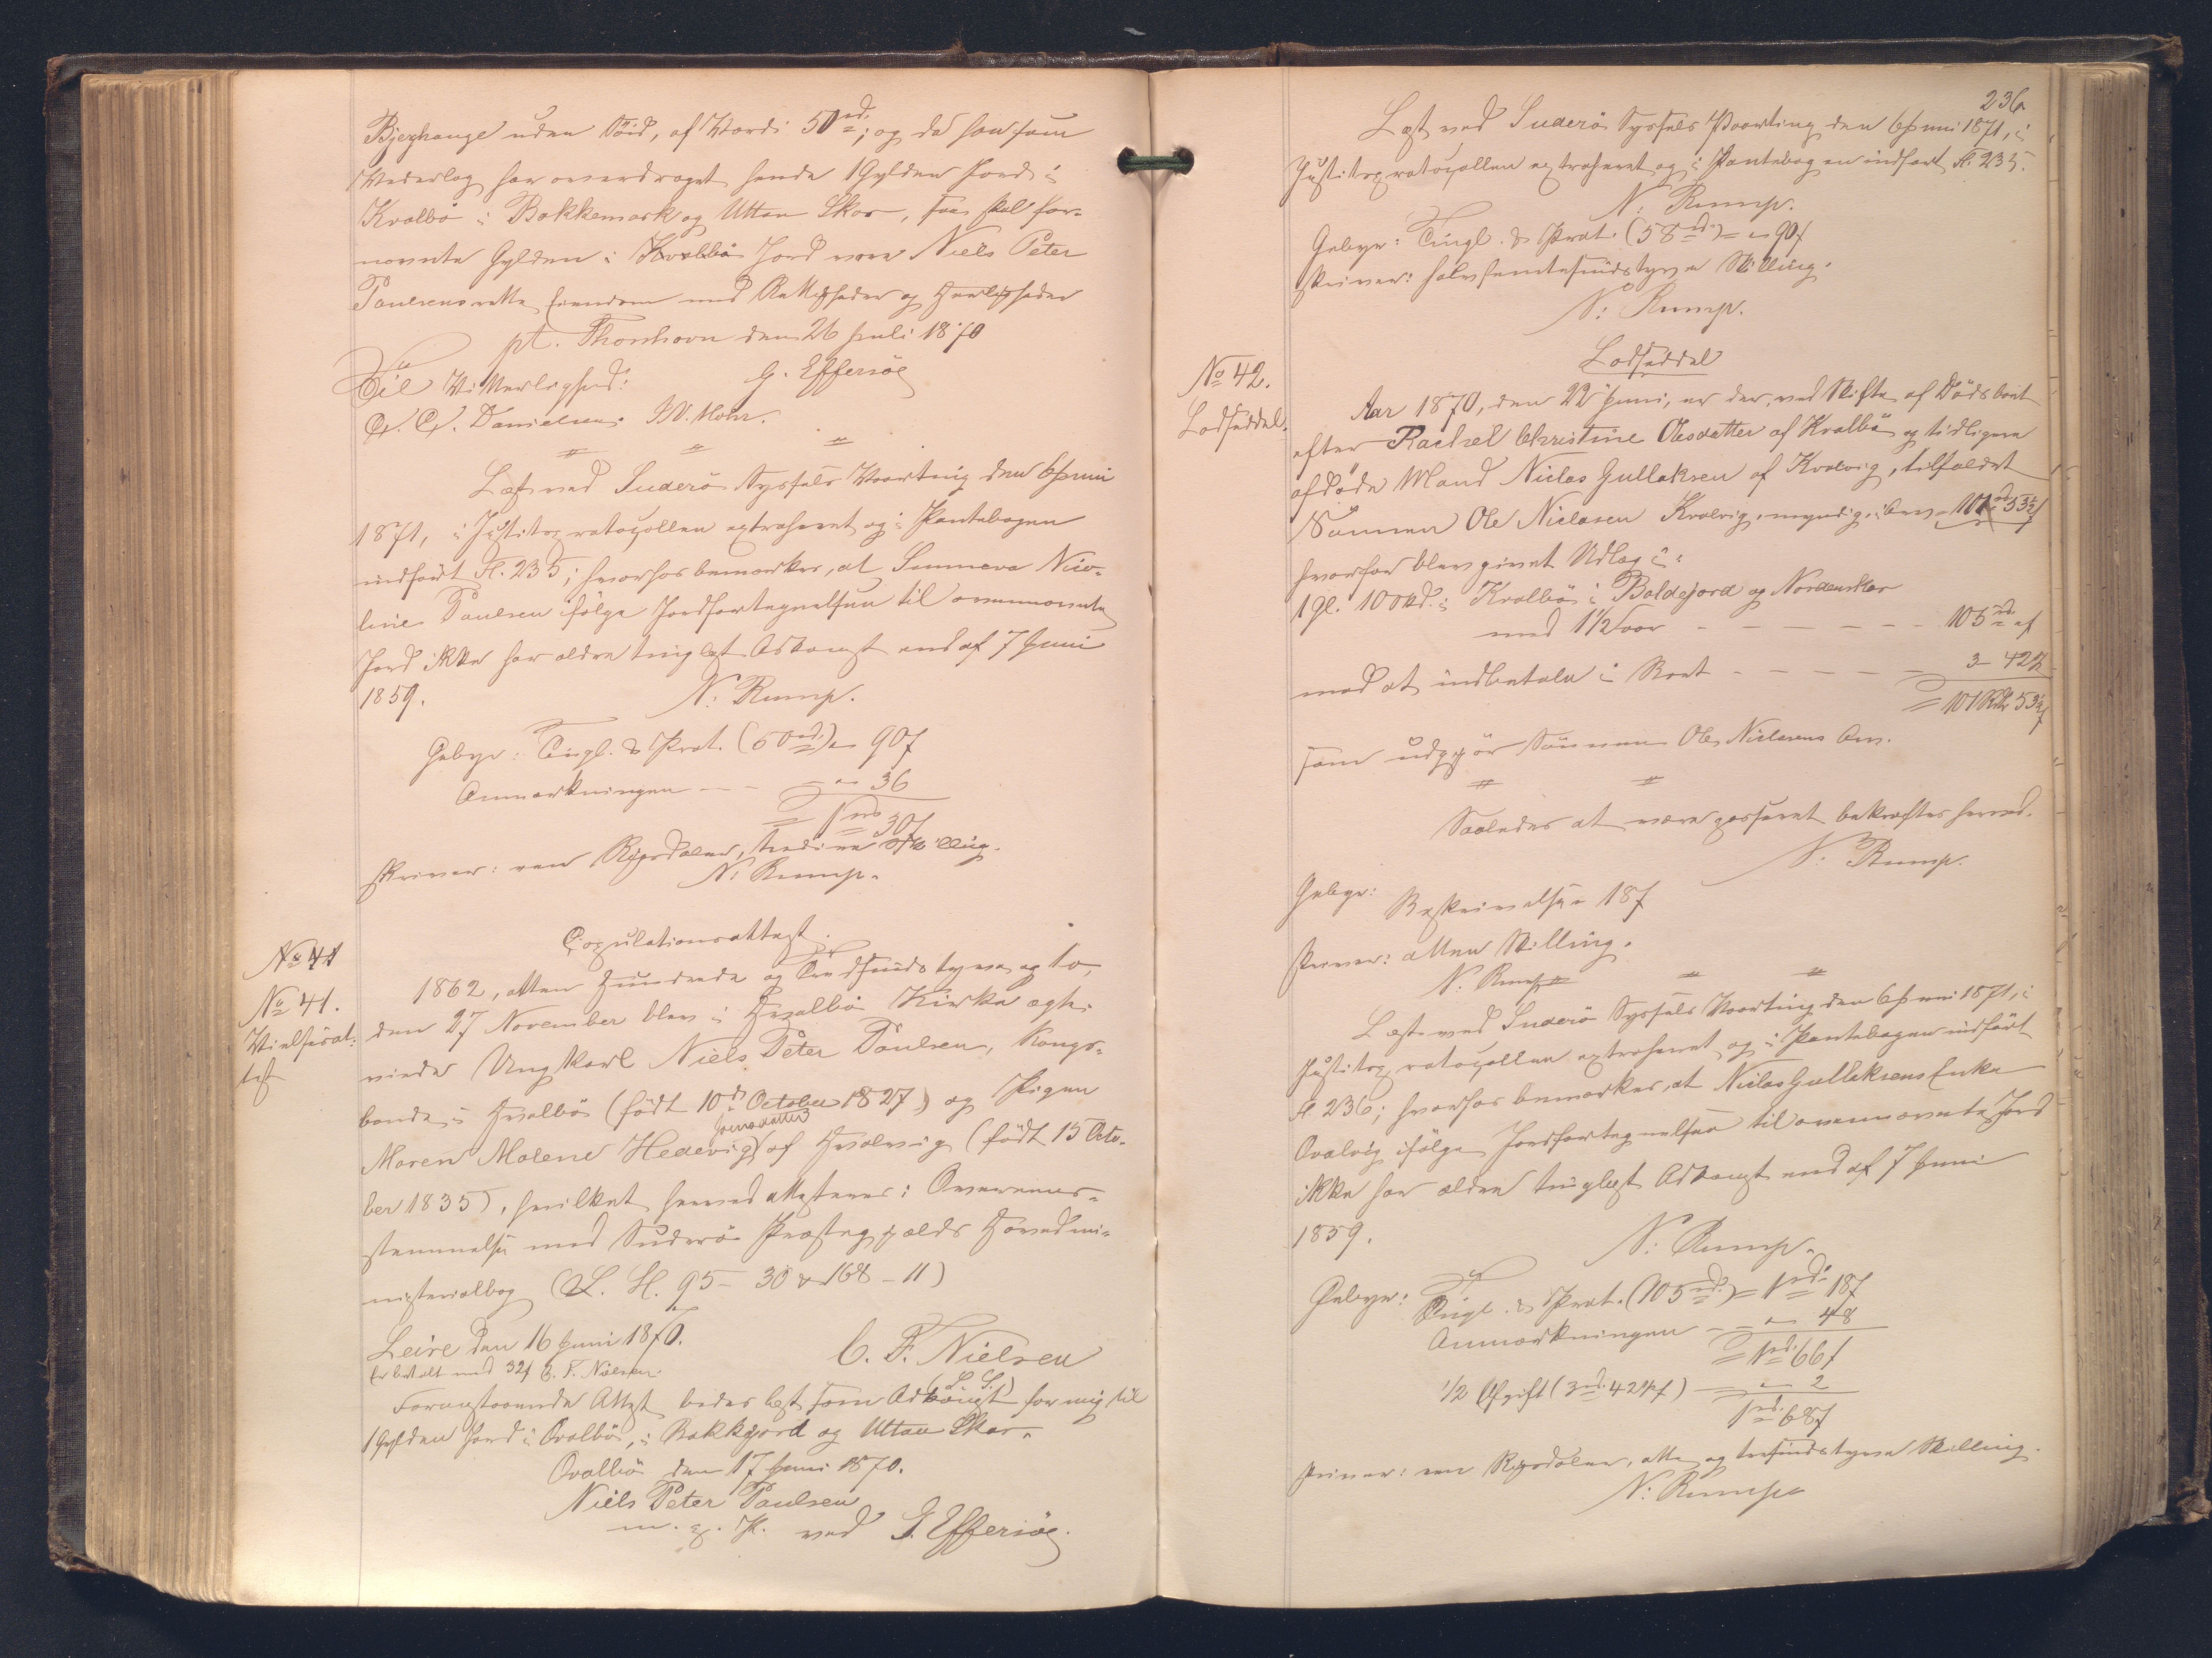 Bjerghauge uden Söid, af Værdi 50 rd.; og da hun som
Vederlag har overdraget hende 1 Gylden Jord i
Kvalbö i Bakkemark og Uttan Skor, saa skal for-
nævnte Gylden i Kvalbö Jord være Niels Peter
Paulsens rette Eiendom med Rettigheder og Herligheder
pt. Thorshavn den 26 Juli 1870
G. Effersöe
Til Vitterlighed:
Danielsen. W. Mohr.
Læst ved Suderö Syssels Vaarting den 6 Juni
1871, i Justitsprotocollen extraheret og i Pantebogen
indfört Fl. 235; hvorhos bemærkes, at Sunneva Nico-
line Paulsen ifölge Jordfortegnelsen til ovennævnte
Jord ikke har ældre tinglæst Adkomst end af 7 Juni
1859.
N: Rump.
Gebyr: Tingl. & Prot. (50 rd.) = 90 f
Anmærkningen - - 36
= 1 rd 30 f
skriver: een Rigsdaler, tredive Skilling.
N: Rump.
No 41
No 41.
Vielsesat-
test
Copulationsattest.
1862, atten Hundrede og Tredsindstyve og to,
den 27 November blev i Hvalbö Kirke ægte-
viede Ungkarl Niels Peter Paulsen, Kongs-
bonde i Hvalbö (födt 10de October 1827) og Pigen
Joensdatter
Maren Malene Hedevig af Hvalvig (födt 15 Octo-
ber 1835), hvilket herved attesteres i Overeens-
stemmelse med Suderö Præstegjælds Hovedmi-
nisterialbog (L. H. 95 - 30 & 168 - 11)
Leire den 16 Juni 1870.
C. F. Nielsen
(L. S.)
Er betalt med 32 f C. F. Nielsen.
Foranstaaende Attest bedes læst som Adkomst for mig til
1 Gylden Jord i Qvalbö, i Bakkjord og Uttan Skor.
Qvalbö den 17 Juni 1870.
Niels Peter Paulsen
m. p. P. ved G. Effersöe.
236
Læst ved Suderö Syssels Vaarting den 6 Juni 1871, i
Justitsprotocollen extraheret og i Pantebogen indfört Fl. 235.
N: Rump.
Gebyr: Tingl. & Prot. (58 rd.) = 90 f
skriver: halvfemtesindstyve Skilling.
N: Rump.
No 42.
Lodseddel.
Lodseddel
Aar 1870, den 22 Juni, er der, ved Skifte af Dödsboet
efter Rachel Christine Olesdatter af Kvalbö og tidligere
afdöde Mand Niclas Gullaksen af Kvalvig, tilfaldet
Sönnen Ole Niclasen Kvalvig, myndig, i Arv - 101 rd 53½ f
hvorfor blev givet Udlæg i:
1 Gl. 10 Skd. i Kvalbö i Baldejord og Nordenskor
med 1½ Soer - - - - - - 105 rd. " f
mod at indbetale i Boet - - - - - 3 - 42½
= 101 Rd 53½ f
som udgjör Sönnen Ole Niclasens Arv.
Saaledes at være passeret bekræftes herved.
N: Rump.
Gebyr:
Beskrivelse 18 f
skriver: atten Skilling.
N. Rump
Læst ved Suderö Syssels Vaarting den 6 Juni 1871, i
Justitsprotocollen extraheret og i Pantebogen indfört
Fl 236; hvorhos bemærkes, at Niclas Gullaksens Enke
Qvalvig ifölge Jordfortegnelsen til ovennævnte Jord
ikke har ældre tinglæst Adkomst end af 7 Juni
1859.
N: Rump.
Gebyr: Tingl. & Prot. (105 rd.) = 1 rd. 18 f
Anmærkningen - - 48
= 1 rd. 66 f
1/2 Afgift (3 rd. 42½ f) - 2
1 rd. 68 f
skriver: een Rigsdaler, otte og tresindstyve Skilling.
N: Rump